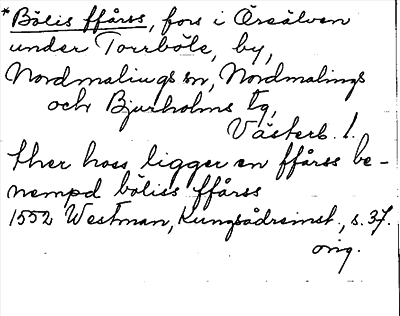 *Bölis ffårss, fors i Öreälven
under Torrböle, by,
Nordmalings sn, Nordmalings
och Bjurholms tg,
Västerb. l.
ther hoss ligger en ffårss be-
nempd böliss ffårss
1552 Westman, Kungsådreinst., s. 37.
orig.